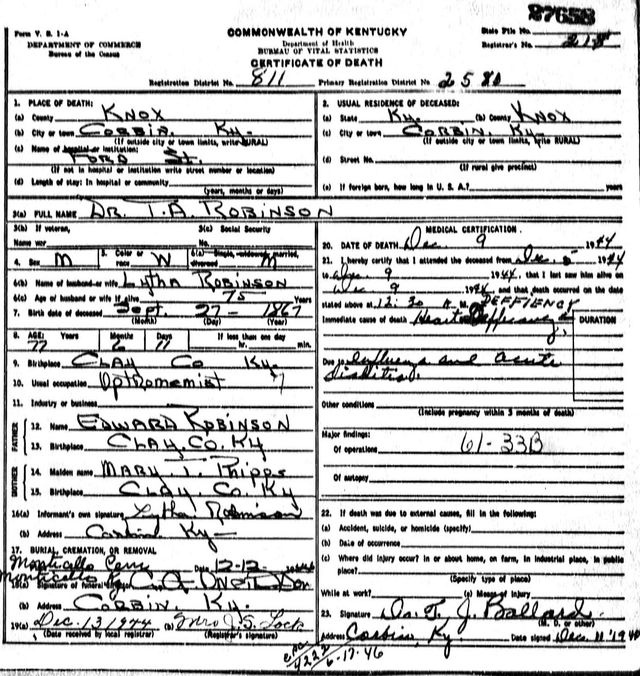 27658
Form V. S. 1-A
DEPARTMENT OF COMMERCE
Bureau of the Census
COMMONWEALTH OF KENTUCKY
Department of Health
BUREAU OF VITAL STATISTICS
CERTIFICATE OF DEATH
State File No.
Registrar's No. 218
Registration District No. 811 Primary Registration District No. 2580
1. PLACE OF DEATH:
(a) County KNOX
(b) City or town CORBIN, KY.
(If outside city or town limits, write RURAL)
(c) Name of hospital or institution:
FORD St.
(If not in hospital or institution write street number or location)
(d) Length of stay: In hospital or community
(years, months or days)
2. USUAL RESIDENCE OF DECEASED:
(a) State Ky. (b) County KNOX
(c) City or town CORBIN, KY.
(If outside city or town limits, write RURAL)
(d) Street No.
(If rural give precinct)
(e) If foreign born, how long in U. S. A.? years
3(a) FULL NAME DR. T. A. ROBINSON
3(b) If veteran, Name war
3(c) Social Security No.
4. Sex M 5. Color or race W 6(a) Single, widowed, married, divorced M
6(b) Name of husband or wife Lytha Robinson
6(c) Age of husband or wife if alive 75 Years
7. Birth date of deceased Sept. 27 - 1867
(Month) (Day) (Year)
8. AGE: 77 Years Months Days 11 If less than one day hr. min.
9. Birthplace CLAY Co Ky.
10. Usual occupation Optromemist
11. Industry or business
FATHER
12. Name EDWARD ROBINSON
13. Birthplace CLAY. Co. KY
MOTHER
14. Maiden name MARY J. Phipps
15. Birthplace CLAY. Co. Ky
16(a) Informant's own signature Lytha Robinson
(b) Address Corbin Ky-
17. BURIAL, CREMATION, OR REMOVAL
Monticello Cem Date 12-12 1944
Monticello Ky
18(a) Signature of funeral director
(b) Address CORBIN, KY.
19(a) Dec. 13 1944 (b) Mrs J. S. Lock
(Date received by local registrar) (Registrar's signature)
MEDICAL CERTIFICATION
20. DATE OF DEATH Dec 9 1944
21. I hereby certify that I attended the deceased from Dec. 1944
to Dec. 9 1944, that I last saw him alive on
Dec 9 1944 and that death occurred on the date
stated above at 12:30 M.
DEFFIENCY
Immediate cause of death Heart
DURATION
Due to Influenza and acute
Other conditions
(Include pregnancy within 3 months of death)
Major findings:
Of operations 61-33B
Of autopsy
22. If death was due to external causes, fill in the following:
(a) Accident, suicide, or homicide (specify)
(b) Date of occurrence
(c) Where did injury occur? In or about home, on farm, in industrial place, in public place?
(Specify type of place)
While at work? (e) Means of injury
23. Signature Dr. T. J. Ballard.
(M. D. or other)
Address Corbin, Ky Date signed Dec. 11 1944
4222
6-17-46